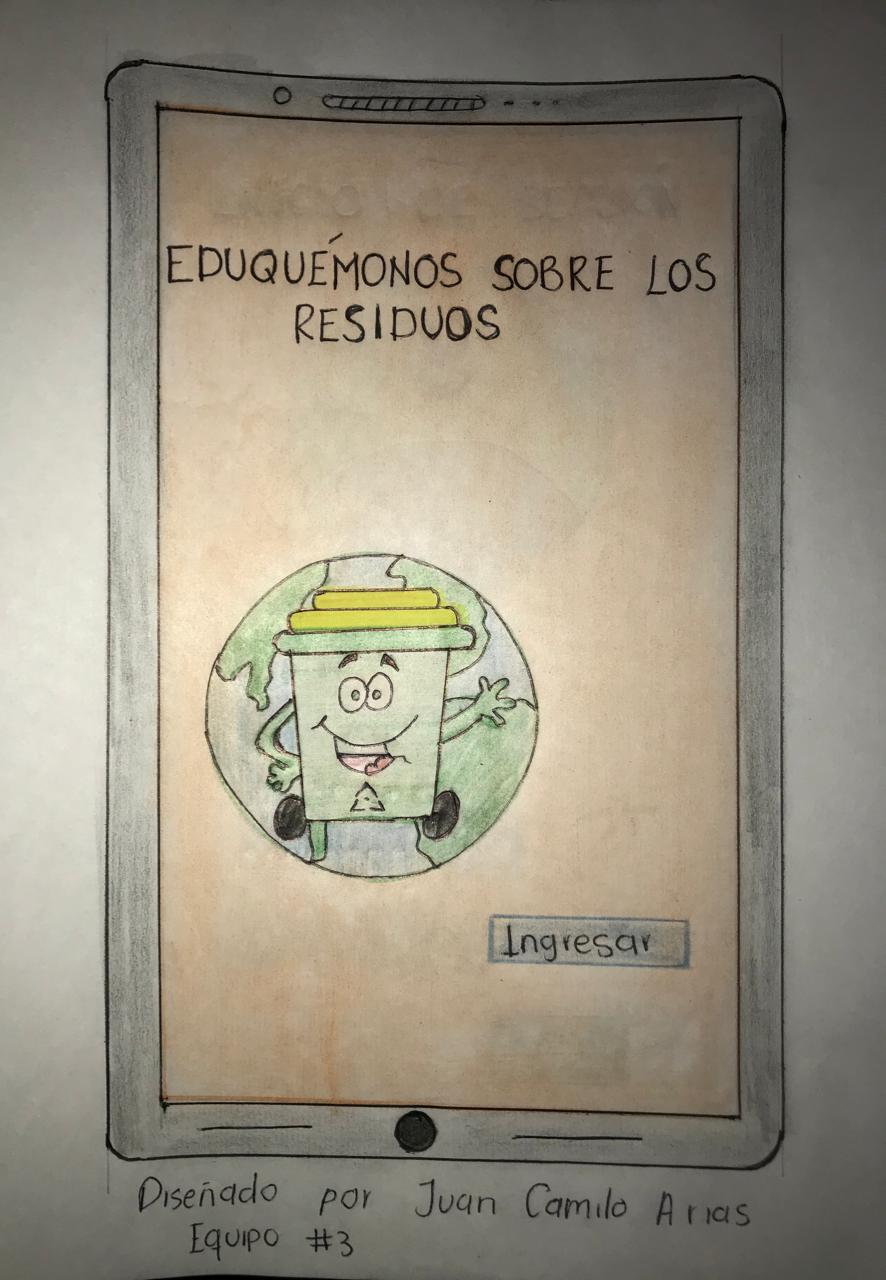 EDUQUÉMONOS SOBRE LOS
RESIDUOS
Ingresar
Diseñado por Juan Camilo Arias
Equipo #3